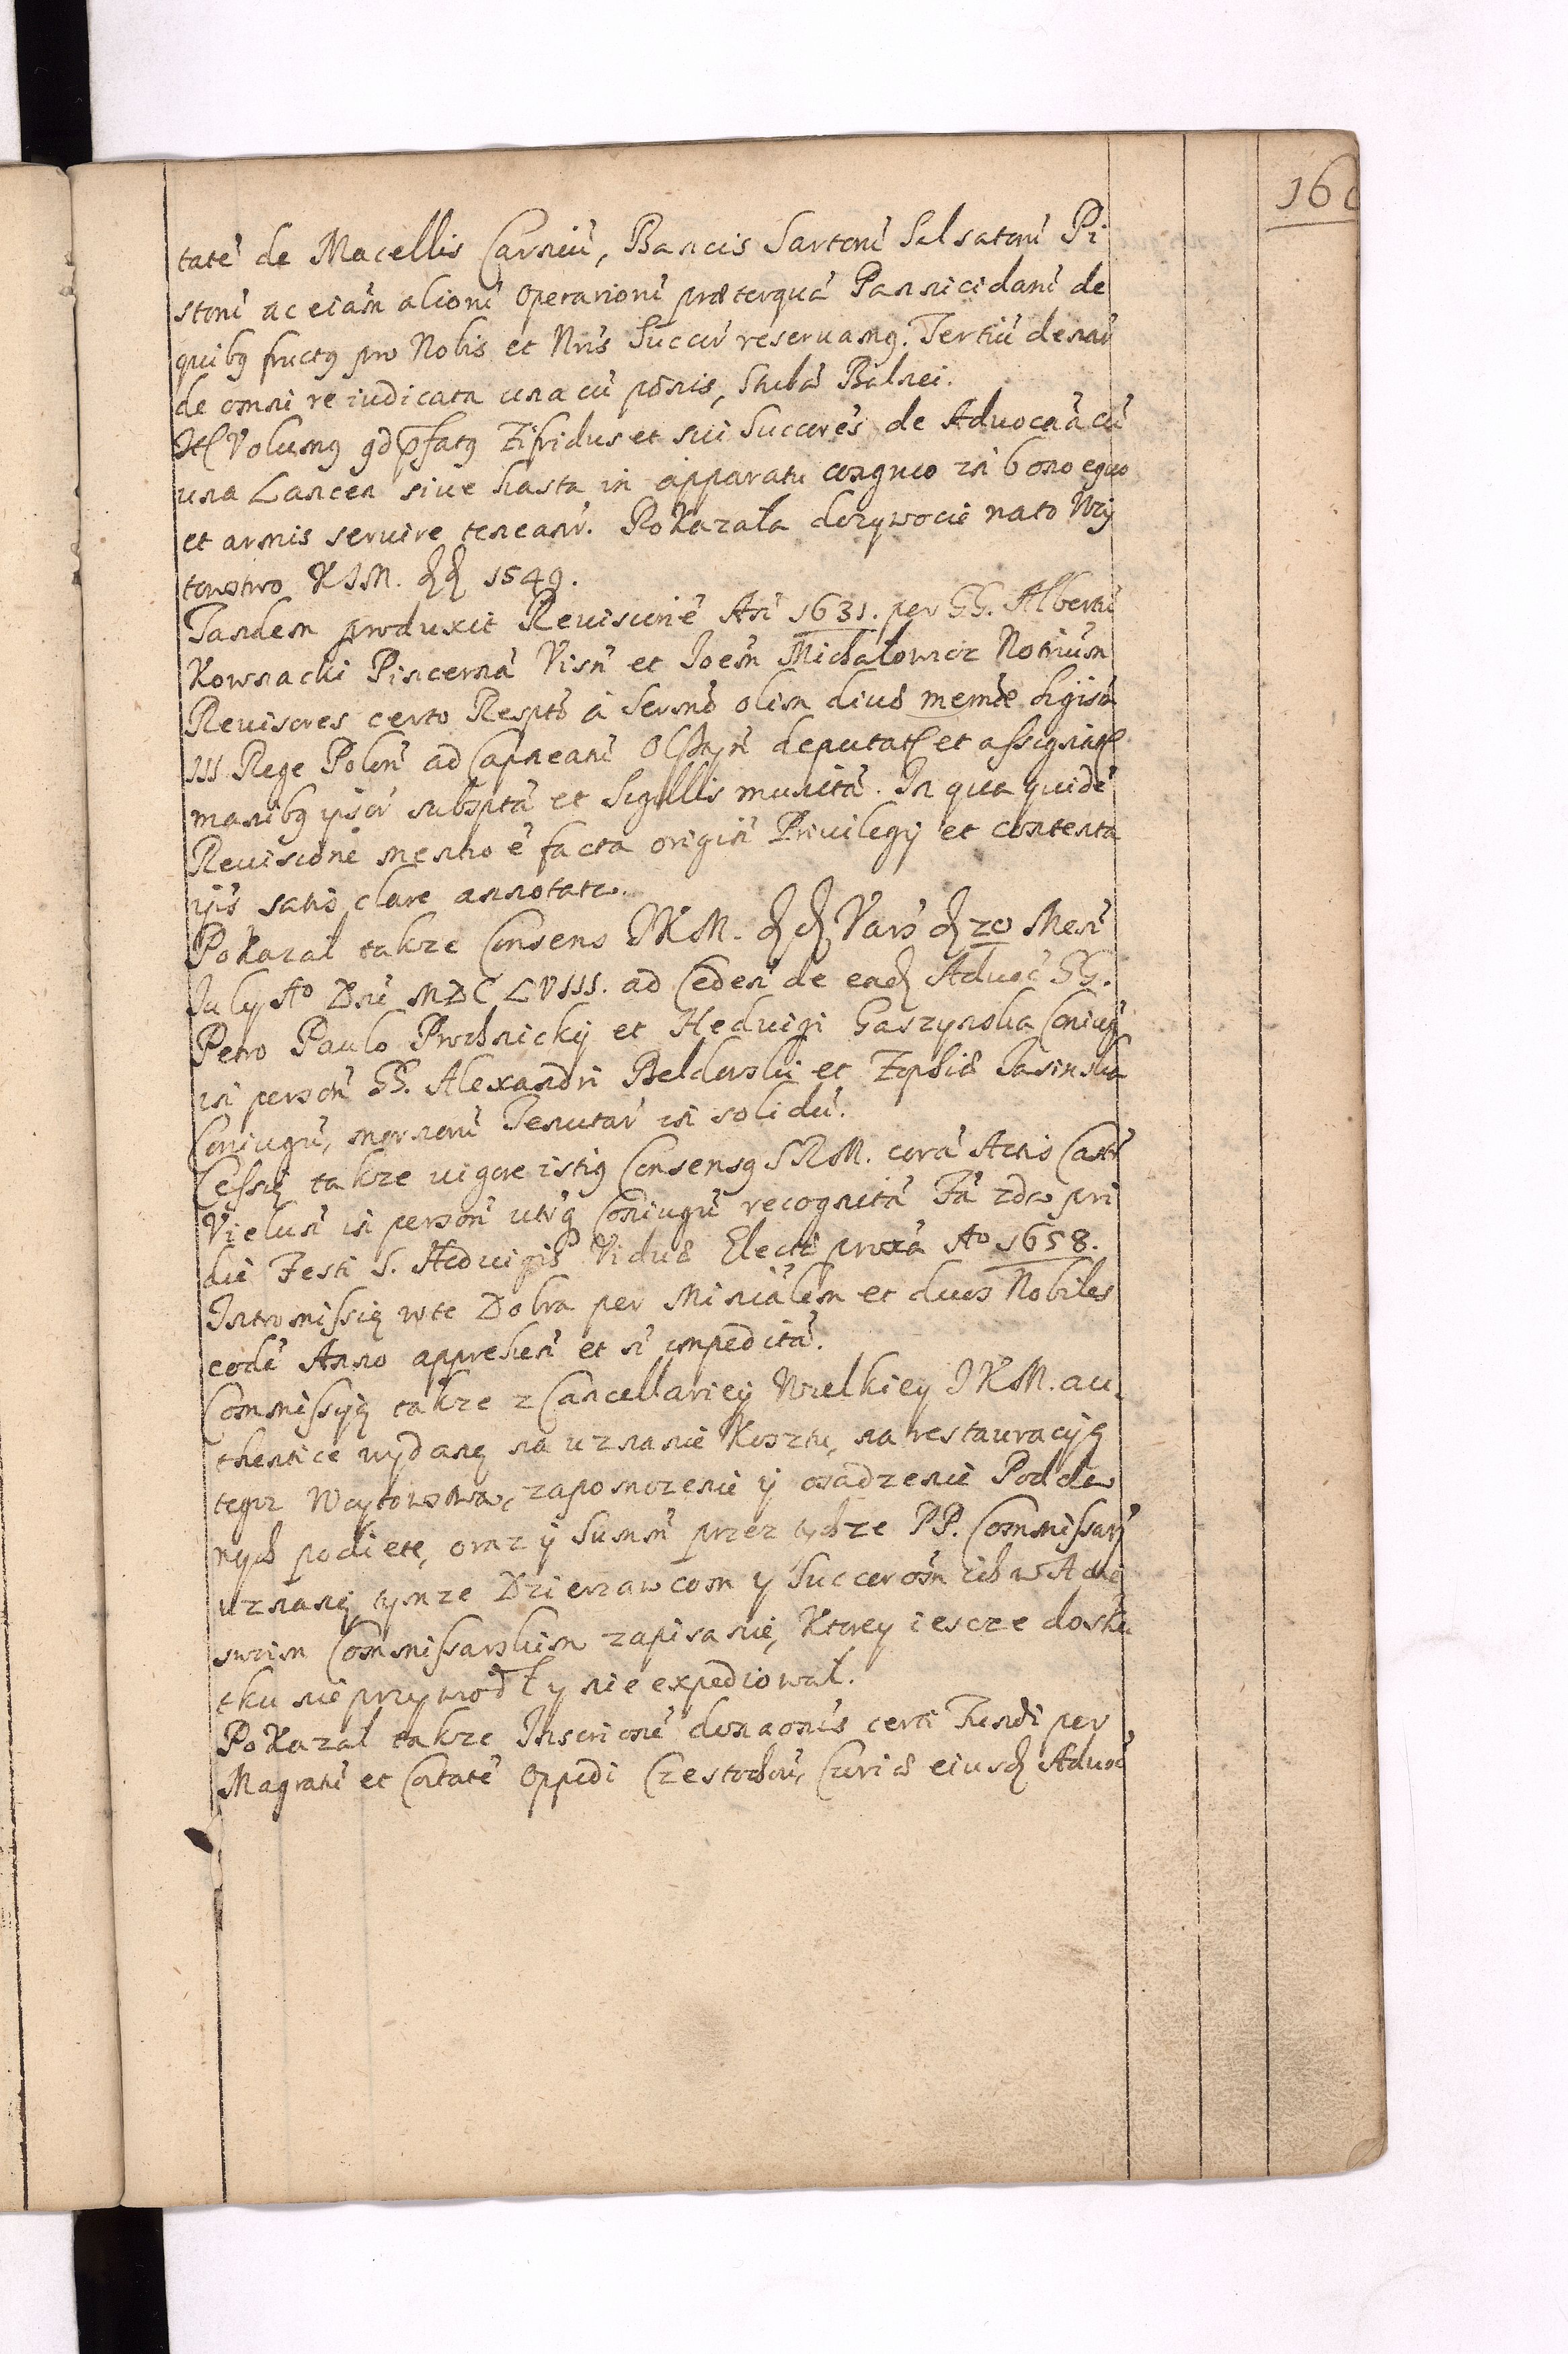 160
tatẽ de Macellis Carniũ, Bancis Sartorũ Salsatorũ Pi
storũ ac eiam aliorũ Operariorũ præterquã Pannicidarũ de
quibꝰ fructꝰ pro Nobis et Nris Succur̃ reservamꝰ. Tertiũ denar̃
de omni re iudicata una cũ põnis, Stubã Balnei.
Itẽ Volumꝰ qd p̃fatꝰ Zifridus et sui Succores de Advocãa cũ
una Lancea sive hasta in apparatu congruo in bono equo
et armis servire teneanr̃. Pokazała dozywocie na to Wóy
towstwo KJM. dd 1549.
Tandem produxit Revisionẽ Añ 1631. per GG. Albertũ
Kownacki Pincernã Visñ et Joem̃ Michałowicz Notriũm
Revisores certo Resptõ à Sermo olim divæ memoe Sigism̃
III Rege Polon̄ ad Capneatũ Olsztyñ deputat et assignat
manibꝰ ipsor̃ subsptã et Sigillis munitã. In qua quidẽ
Revisionẽ mentio ẽ facta origiñ Privilegij et contenta
ijs̃ satis clare annotata.
Pokazał takze Consens JKM. dd Vars̃ d 20 Meñ
July Aº Dñi MDCLVIII. ad Cedeñ de ead Advoc̃ GG.
Petro Paulo Prochnicky et Hedvigi Gaszynska Coniug̃
in persoñ GG. Alexandri Beldowski et Zophiæ Jasinska
Coniugũ, mornorũ Tenutar̃ in solidũ.
Cessią takze vigore istiꝰ Consensꝰ SRM. corã Actis Castr̃
Vieluñ in persoñ utriq̃ Coniugũ recognitã Fã 2da pri
die Festi S. Hedvigis Viduæ Electæ proxã Aº 1658.
Intromissią w te Dobra per Minĩalem et duos Nobiles
eodẽ Anno apprehẽñ et ñ impeditã.
Commissyią takze z Cancellariey Wielkiey JKM. au-
thentice wydaną na uznanie Kosztu, na restauracyią
tegoz Woytowstwa, zapomozenie y osadzenie Podda
nych podiete, oraz y Summ̃ przez tychze PP. Commissarz̃
uznaną tymze Dzierzawcom y Succerom̃ ich w Akcie
swoim Commissarskim zapisanie, Ktorey ieszcze do sku
tku nie przywiodł y nie expediował.
Pokazał takze Inscrionẽ donaonis certi Fundi per
Magratũ et Coitatẽ Oppidi Czestochov̄, Curiæ eiusd Advoc̃